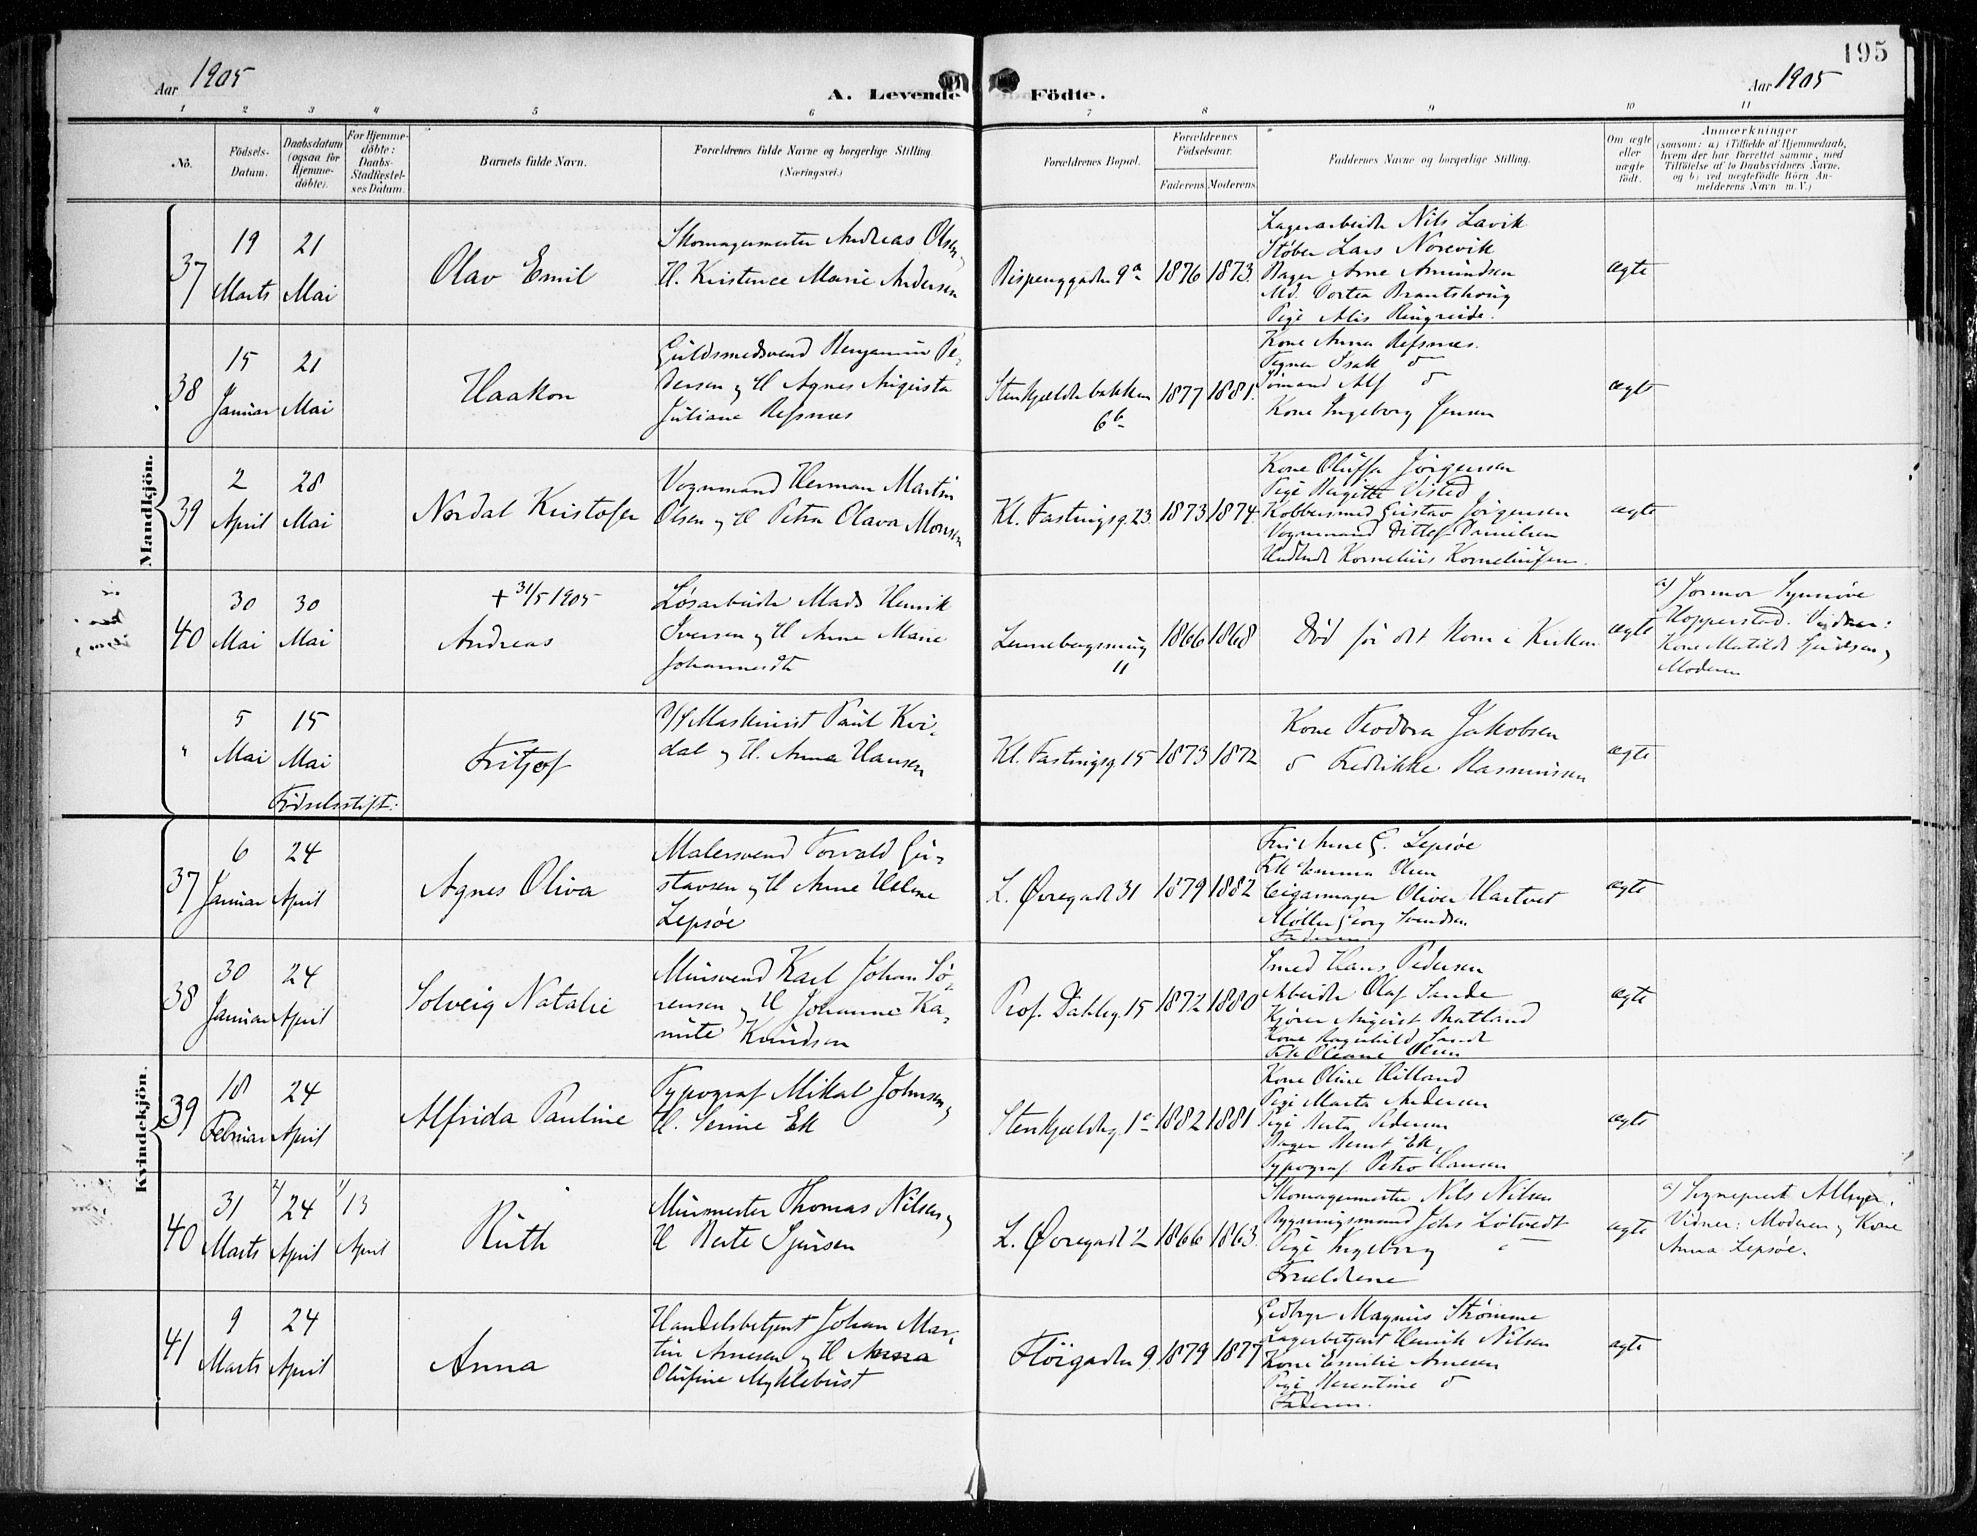 195
Aar 1905
A. Levende Födte.
Aar 1905
1 2 3 4 5 6 7 8 9 10 11
No.
Födsels-Datum.
Daabsdatum (ogsaa for Hjemmedöbte).
For Hjemmedöbte: Daabs-Stadfæstelses Datum.
Barnets fulde Navn.
Forældrenes fulde Navne og borgerlige Stilling.
(Næringsvei.)
Forældrenes Bopæl.
Forældrenes Födselsaar.
Faderens Moderens
Faddernes Navne og borgerlige Stilling.
Om ægte eller uægte födt.
Anmærkninger
(saasom: a) i Tilfælde af Hjemmedaab,
hvem der har forrettet samme, med
Tilföielse af to Daabsvidners Navne,
og b) ved uægtefödte Börn An-
melderens Navn m. V.)
Mandkjön.
37
19 Marts
21 Mai
Olav Emil
Skomagermester Andreas Olsen
H. Kristence Marie Andersen
Bispenggaden 9a
1876 1873
Lagerarbeider Nils Lavik
Støber Lars Norevik
Bager Arne Amundsen
Md. Dortea
Pige Alis
ægte
38
15 Januar
21 Mai
Haakon
Guldsmedsvend Benjamin Pe-
dersen og H Agnes Augusta
Juliane Refsnæs
Stenkjælderbakken
6b
1877 1881
Kone Anna Refsnæs.
Isak do
Sömand Alf do
Kone Ingeborg Jensen
ægte
39
2 April
28 Mai
Nordal Kristofer
Vognmand Herman Martin
Olsen og H Petra Olava Monsen
Kl. Fastingsg. 23
1873 1874
Kone Oluffa Jörgensen
Pige Birgitte Visted
Kobbersmed Gustav Jörgensen
Vognmand Ditlef Danielsen
Kornelius Korneliussen.
ægte
40
30 Mai
30 Mai
+ 31/5 1905
Andreas
Løsarbeider Mads Henrik
Iversen og H Anne Marie
Johannesdtr
11
1866 1868
Död för det kom i Kirken
ægte
a) Jormor Synnöve
Hopperstad. Vidner:
Kone Matilde og
Moderen
"
5 Mai
15 Mai
Fritjof
Maskinist Paul Kvi-
dal og H. Anna Hansen
Kl. Fastingsg 15
1873 1872
Kone Teodora Jakobsen
do Fredrikke Rasmussen
ægte
Födselsstift:
Kvindekjön.
37
6 Januar
24 April
Agnes Oliva
Malersvend Torvald Gu-
stavsen og H Anne Helene
Lepsöe
L. Øvregade 31
1879 1882
Anne G. Lepsöe
Frk Emma Olsen
Cigarmager Oliver Hartvet
Møller Georg Svendsen
Faderen.
ægte
38
30 Januar
24 April
Solveig Natalie
Mursvend Karl Johan Sö-
rensen og H Johanne Ka-
mite Knudsen
Prof. Dahlsg. 15
1872 1880
Smed Hans Pedersen
Arbeider Olaf Sande
August
Kone Ragnhild Sande
Frk Oleane Olsen
ægte
39
18 Februar
24 April
Alfrida Pauline
Typograf Mikal Johnsen og
H. Serine Ek
Stenkjælderg 1a
1882 1881
Kone Oline Hilland
Pige Marta Andersen
Pige Berta Pedersen
Bager Bernt Ek
Typograf Petro Hansen
ægte
40
31 Marts
2/ 24 April
1/ 13 April
Ruth
Murmester Thomas Nilsen og
H Berte Sjursen
L. Øvregade 2
1866 1863
Skomagermester Nils Nilsen
Bygningsmand Johs Lötvedt
Pige Ingeborg "
Forældrene
ægte
a) Sogneprest
Vidner: Moderen og Kone
Anna Lepsöe.
41
9 Marts
24 April
Anna
Handelsbetjent Johan Mar-
tin Arnesen og H Anna
Olufine Myklebust
Flöigaden 9
1879 1877
Magnus Strömme
Lagerbetjent Henrik Nilsen
Kone Emilie Arnesen
Pige Berentine do
Faderen.
ægte